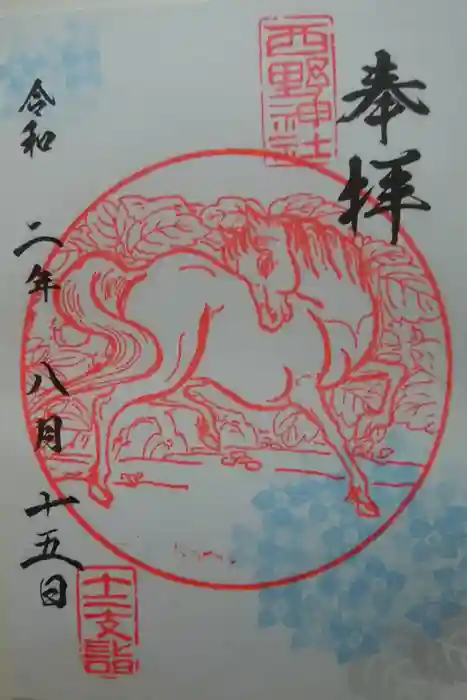 奉拝
西野神社
令和二年八月十五日
十二支詣